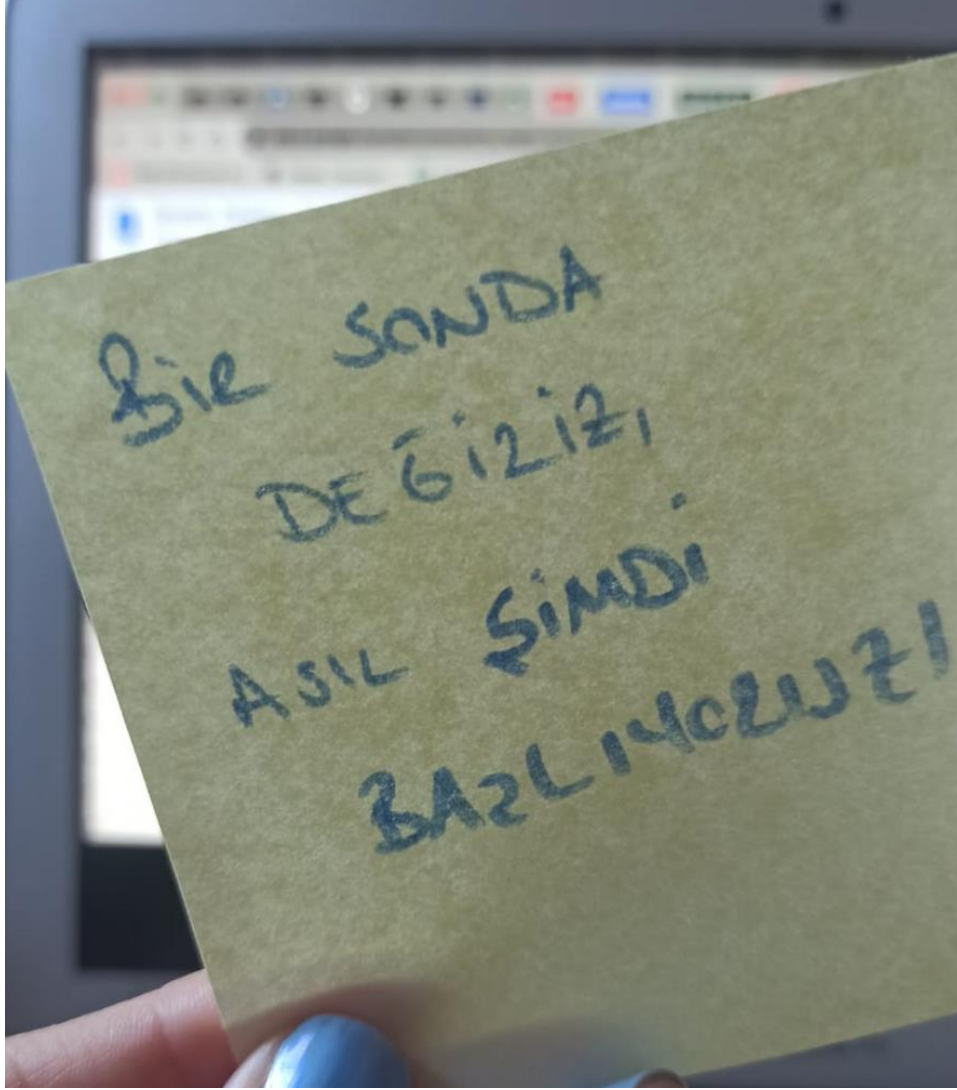 BİR SONDA
DEĞİLİZ,
ASIL ŞİMDİ
BAŞLIYORUZ!